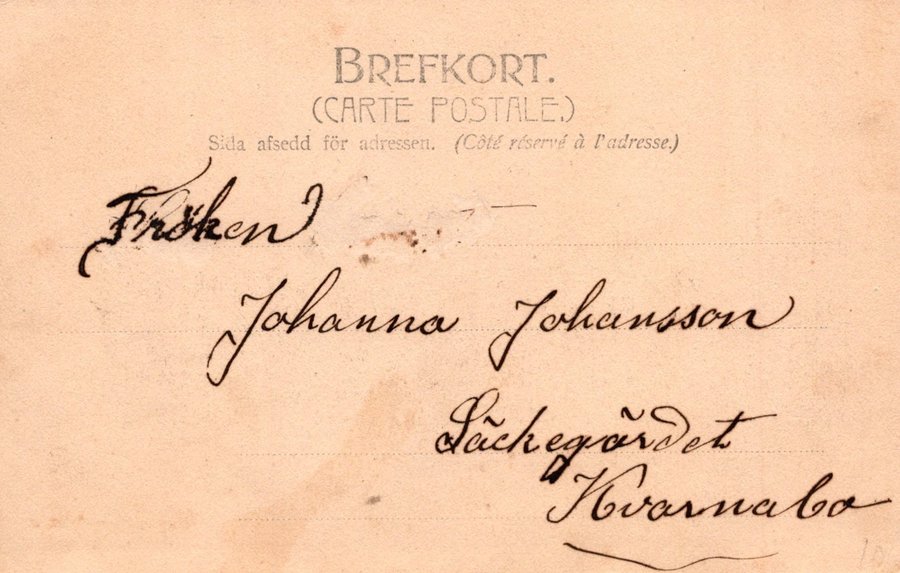 BREFKORT.
(CARTE POSTALE.)
Sida afsedd för adressen. (Côté réservé à l'adresse.)
Fröken
Johanna Johansson
Säckegärdet
Hvarnabo
10